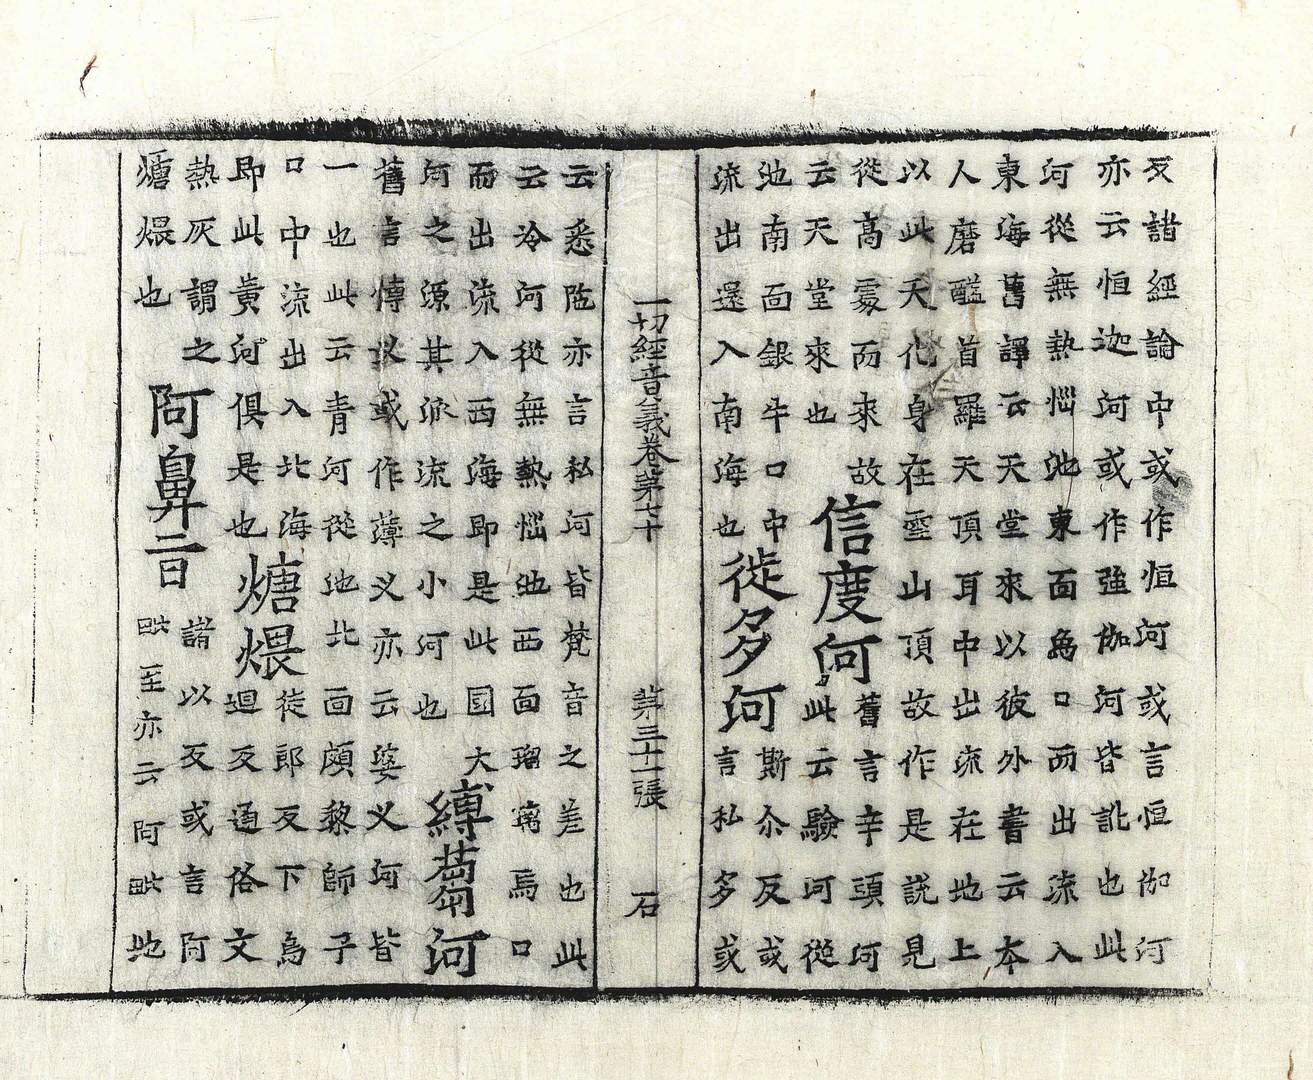 反諸經論中或作恒河或言恒伽河
亦云恒迦河或作強伽河皆訛也此
河從無熱惱池東面為口而出流入
東海舊譯云天堂來以彼外書云本
人磨醯首羅天頂耳中出流在地上
以此天化身在雪山頂故作是說見
從高處而來故
云天堂來也
信度河
舊言辛頭河
此云驗河從
池南面銀牛口中
流出還入南海也
徙多河
斯尒反或
言私多或
一切經音義卷第七十 第三十一張 石
云悉陁亦言私河皆梵音之差也此
云冷河從無熱惱池西面瑠璃馬口
而出流入西海即是此國大
河之源其派流之小河也
縛蒭河
舊言愽叉或作薄叉亦云婆叉河皆
一也此云青河從池北面頗黎師子
口中流出入北海
即此黃河俱是也
煻煨
徒郎反下烏
迴反通俗文
熱灰謂之
煻煨也
阿鼻旨
諸以反或言阿
毗至亦云阿毗地